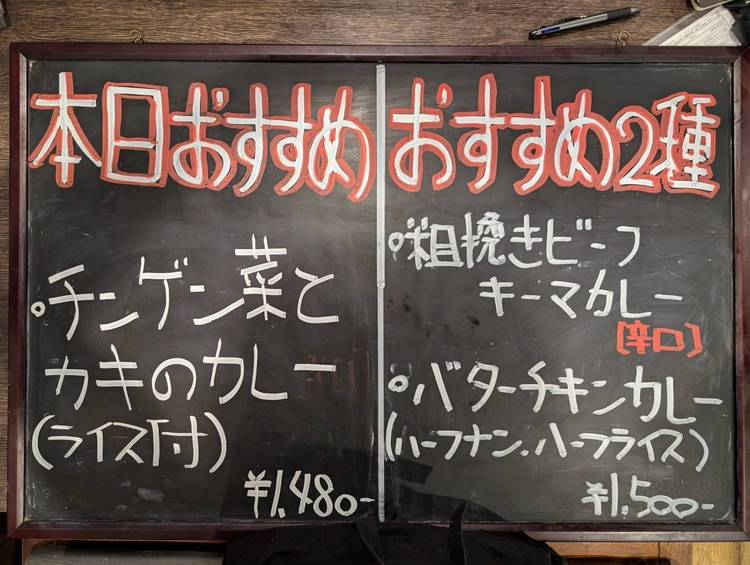 本日おすすめ
○チンゲン菜と
カキのカレー
(ライス付)
¥1,480-
おすすめ2種
○粗挽きビーフ
キーマカレー
[辛口]
○バターチキンカレー
(ハーフナン、ハーフライス)
¥1,500-